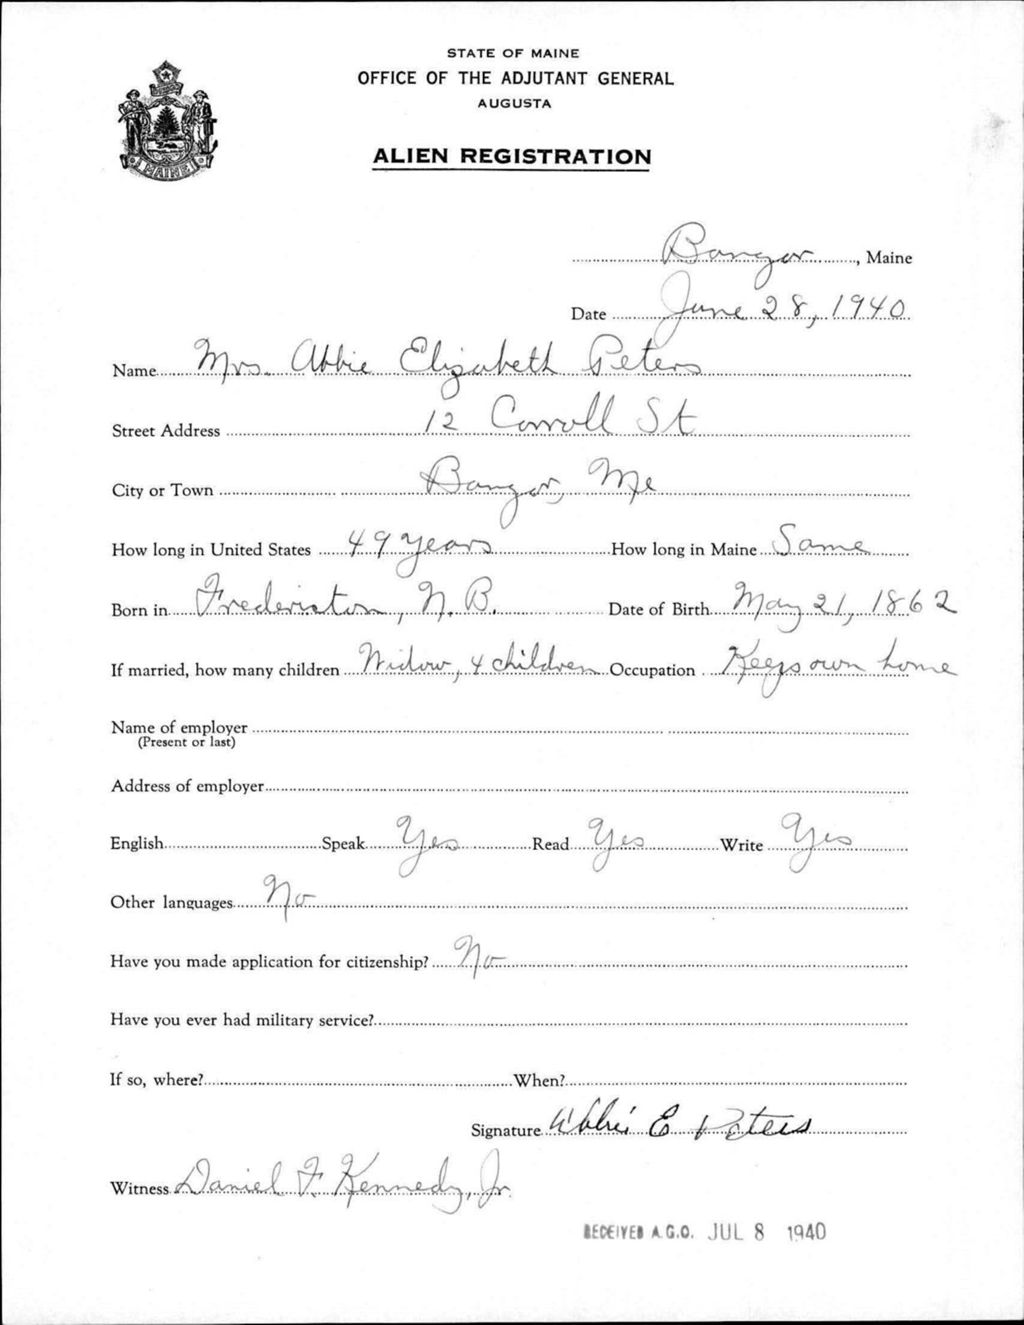 STATE OF MAINE
OFFICE OF THE ADJUTANT GENERAL
AUGUSTA
ALIEN REGISTRATION
MAINE
Bangor, Maine
Date June 28, 1940
Name Mrs. Abbie Elizabeth Peters
Street Address 12 Carroll St
City or Town Bangor, Me
How long in United States 49 years How long in Maine Same
Born in Fredericton, N.B. Date of Birth May 21, 1862
If married, how many children Widow, 4 children Occupation Keeps own home
Name of employer
(Present or last)
Address of employer
English Speak Yes Read Yes Write Yes
Other languages No
Have you made application for citizenship? No
Have you ever had military service?
If so, where? When?
Signature Abbie E Peters
Witness Daniel F. Kennedy, Jr.
RECEIVED A.G.O. JUL 8 1940